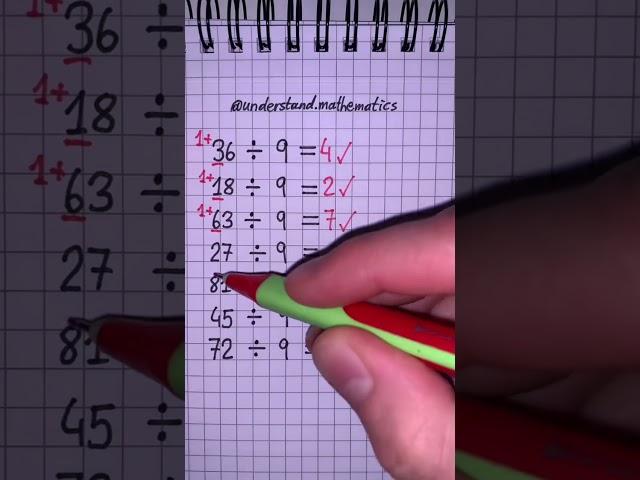 @understand.mathematics
1+36 ÷ 9 = 4 ✓
1+18 ÷ 9 = 2 ✓
1+63 ÷ 9 = 7 ✓
27 ÷ 9 =
81
45 ÷ 9
72 ÷ 9 =